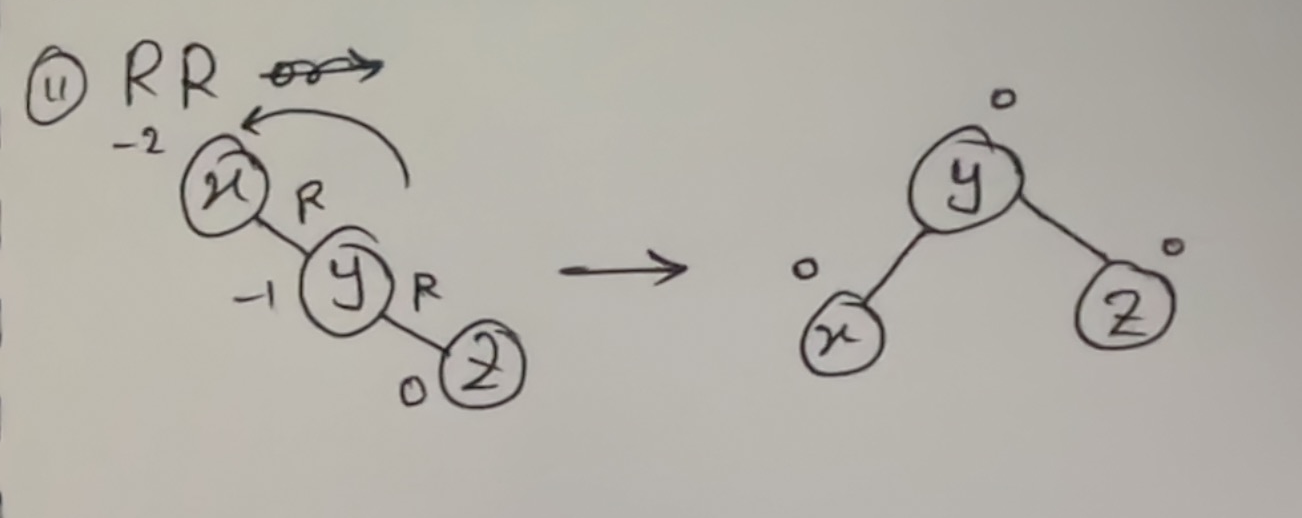 (ii) RR
-2
x R
-1 y R
0 z
0
y
0 0
x z